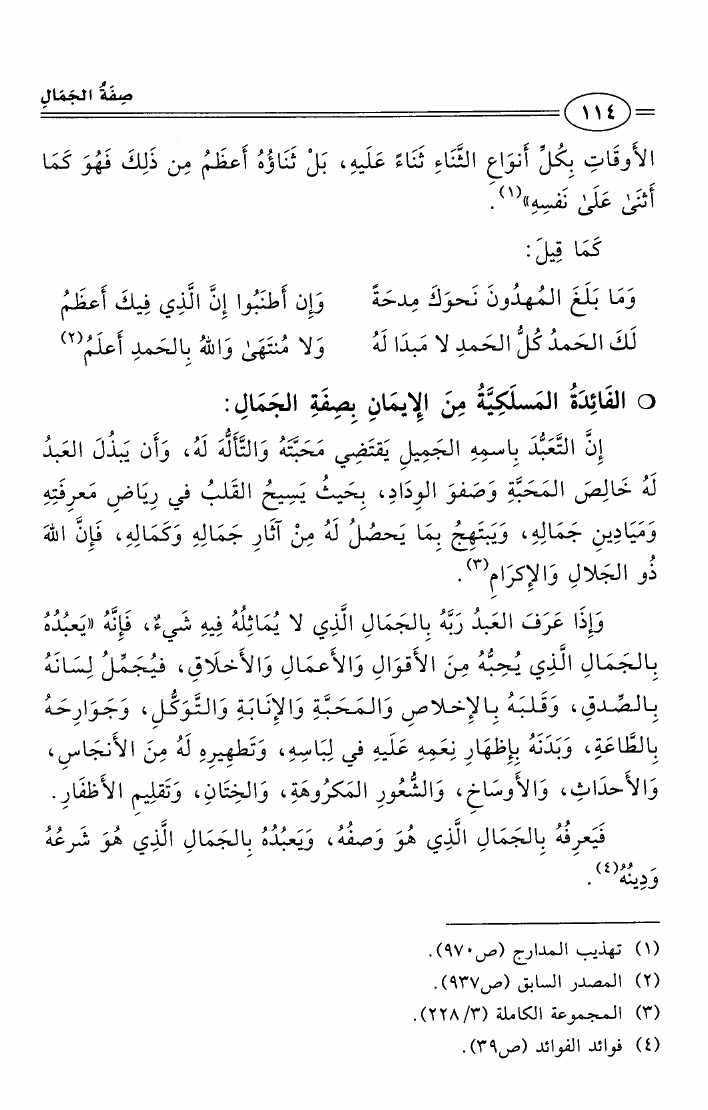 صِفَةُ الجَمَالِ
١١٤
الأَوقَاتِ بِكُلِّ أَنوَاعِ الثَّنَاءِ ثَنَاءً عَلَيهِ، بَلْ ثَنَاؤُهُ أَعظَمُ مِن ذَلِكَ فَهُوَ كَمَا
أَثنَىٰ عَلَىٰ نَفسِهِ»(١).
كَمَا قِيلَ:
وَمَا بَلَغَ المُهدُونَ نَحوَكَ مِدحَةً وَإِن أَطنَبُوا إِنَّ الَّذِي فِيكَ أَعظَمُ
لَكَ الحَمدُ كُلُّ الحَمدِ لا مَبدَا لَهُ وَلا مُنتَهَىٰ وَاللهُ بِالحَمدِ أَعلَمُ(٢)
○ الفَائِدَةُ المَسلَكِيَّةُ مِنَ الإِيمَانِ بِصِفَةِ الجَمَالِ:
إِنَّ التَّعَبُّدَ بِاسمِهِ الجَمِيلِ يَقتَضِي مَحَبَّتَهُ وَالتَّأَلُّهَ لَهُ، وَأَن يَبذُلَ العَبدُ
لَهُ خَالِصَ المَحَبَّةِ وَصَفوَ الوِدَادِ، بِحَيثُ يَسِيحُ القَلبُ في رِيَاضِ مَعرِفَتِهِ
وَمَيَادِينِ جَمَالِهِ، وَيَبتَهِجُ بِمَا يَحصُلُ لَهُ مِنْ آثَارِ جَمَالِهِ وَكَمَالِهِ، فَإِنَّ اللهَ
ذُو الجَلالِ وَالإِكرَامِ(٣).
وَإِذَا عَرَفَ العَبدُ رَبَّهُ بِالجَمَالِ الَّذِي لا يُمَاثِلُهُ فِيهِ شَيءٌ، فَإِنَّهُ «يَعبُدُهُ
بِالجَمَالِ الَّذِي يُحِبُّهُ مِنَ الأَقوَالِ وَالأَعمَالِ وَالأَخلَاقِ، فَيُجَمِّلُ لِسَانَهُ
بِالصِّدقِ، وَقَلبَهُ بِالإِخلاصِ وَالمَحَبَّةِ وَالإِنَابَةِ وَالتَّوَكُّلِ، وَجَوَارِحَهُ
بِالطَّاعَةِ، وَبَدَنَهُ بِإِظهَارِ نِعَمِهِ عَلَيهِ في لِبَاسِهِ، وَتَطهِيرِهِ لَهُ مِنَ الأَنجَاسِ،
وَالأَحدَاثِ، وَالأَوسَاخِ، وَالشُّعُورِ المَكرُوهَةِ، وَالخِتَانِ، وَتَقلِيمِ الأَظفَارِ.
فَيَعرِفُهُ بِالجَمَالِ الَّذِي هُوَ وَصفُهُ، وَيَعبُدُهُ بِالجَمَالِ الَّذِي هُوَ شَرعُهُ
وَدِينُهُ(٤).
(١) تهذيب المدارج (ص٩٧٠).
(٢) المصدر السابق (ص٩٣٧).
(٣) المجموعة الكاملة (٢٢٨/٣).
(٤) فوائد الفوائد (ص٣٩).